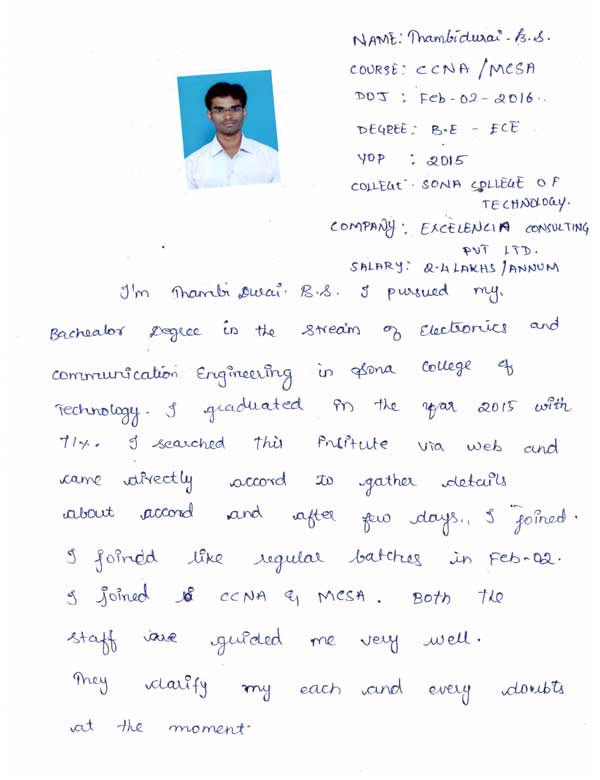 NAME: Thambidurai - B.S.
COURSE: CCNA / MCSA
DOJ : Feb - 02 - 2016.
DEGREE: B.E - ECE
YOP : 2015
COLLEGE: SONA COLLEGE OF
TECHNOLOGY.
COMPANY: EXCELENCIA CONSULTING
PVT LTD.
SALARY: 2.4 LAKHS / ANNUM
I'm Thambi Durai. B.S. I pursued my
Bachealor Degree in the stream of Electronics and
communication Engineering in Sona College of
Technology. I graduated in the year 2015 with
71%. I searched this institute via web and
came directly accord to gather details
about accord and after few days., I joined.
I joined like regular batches in Feb-02.
I joined CCNA & MCSA. Both the
staff are guided me very well.
They clarify my each and every doubts
at the moment.